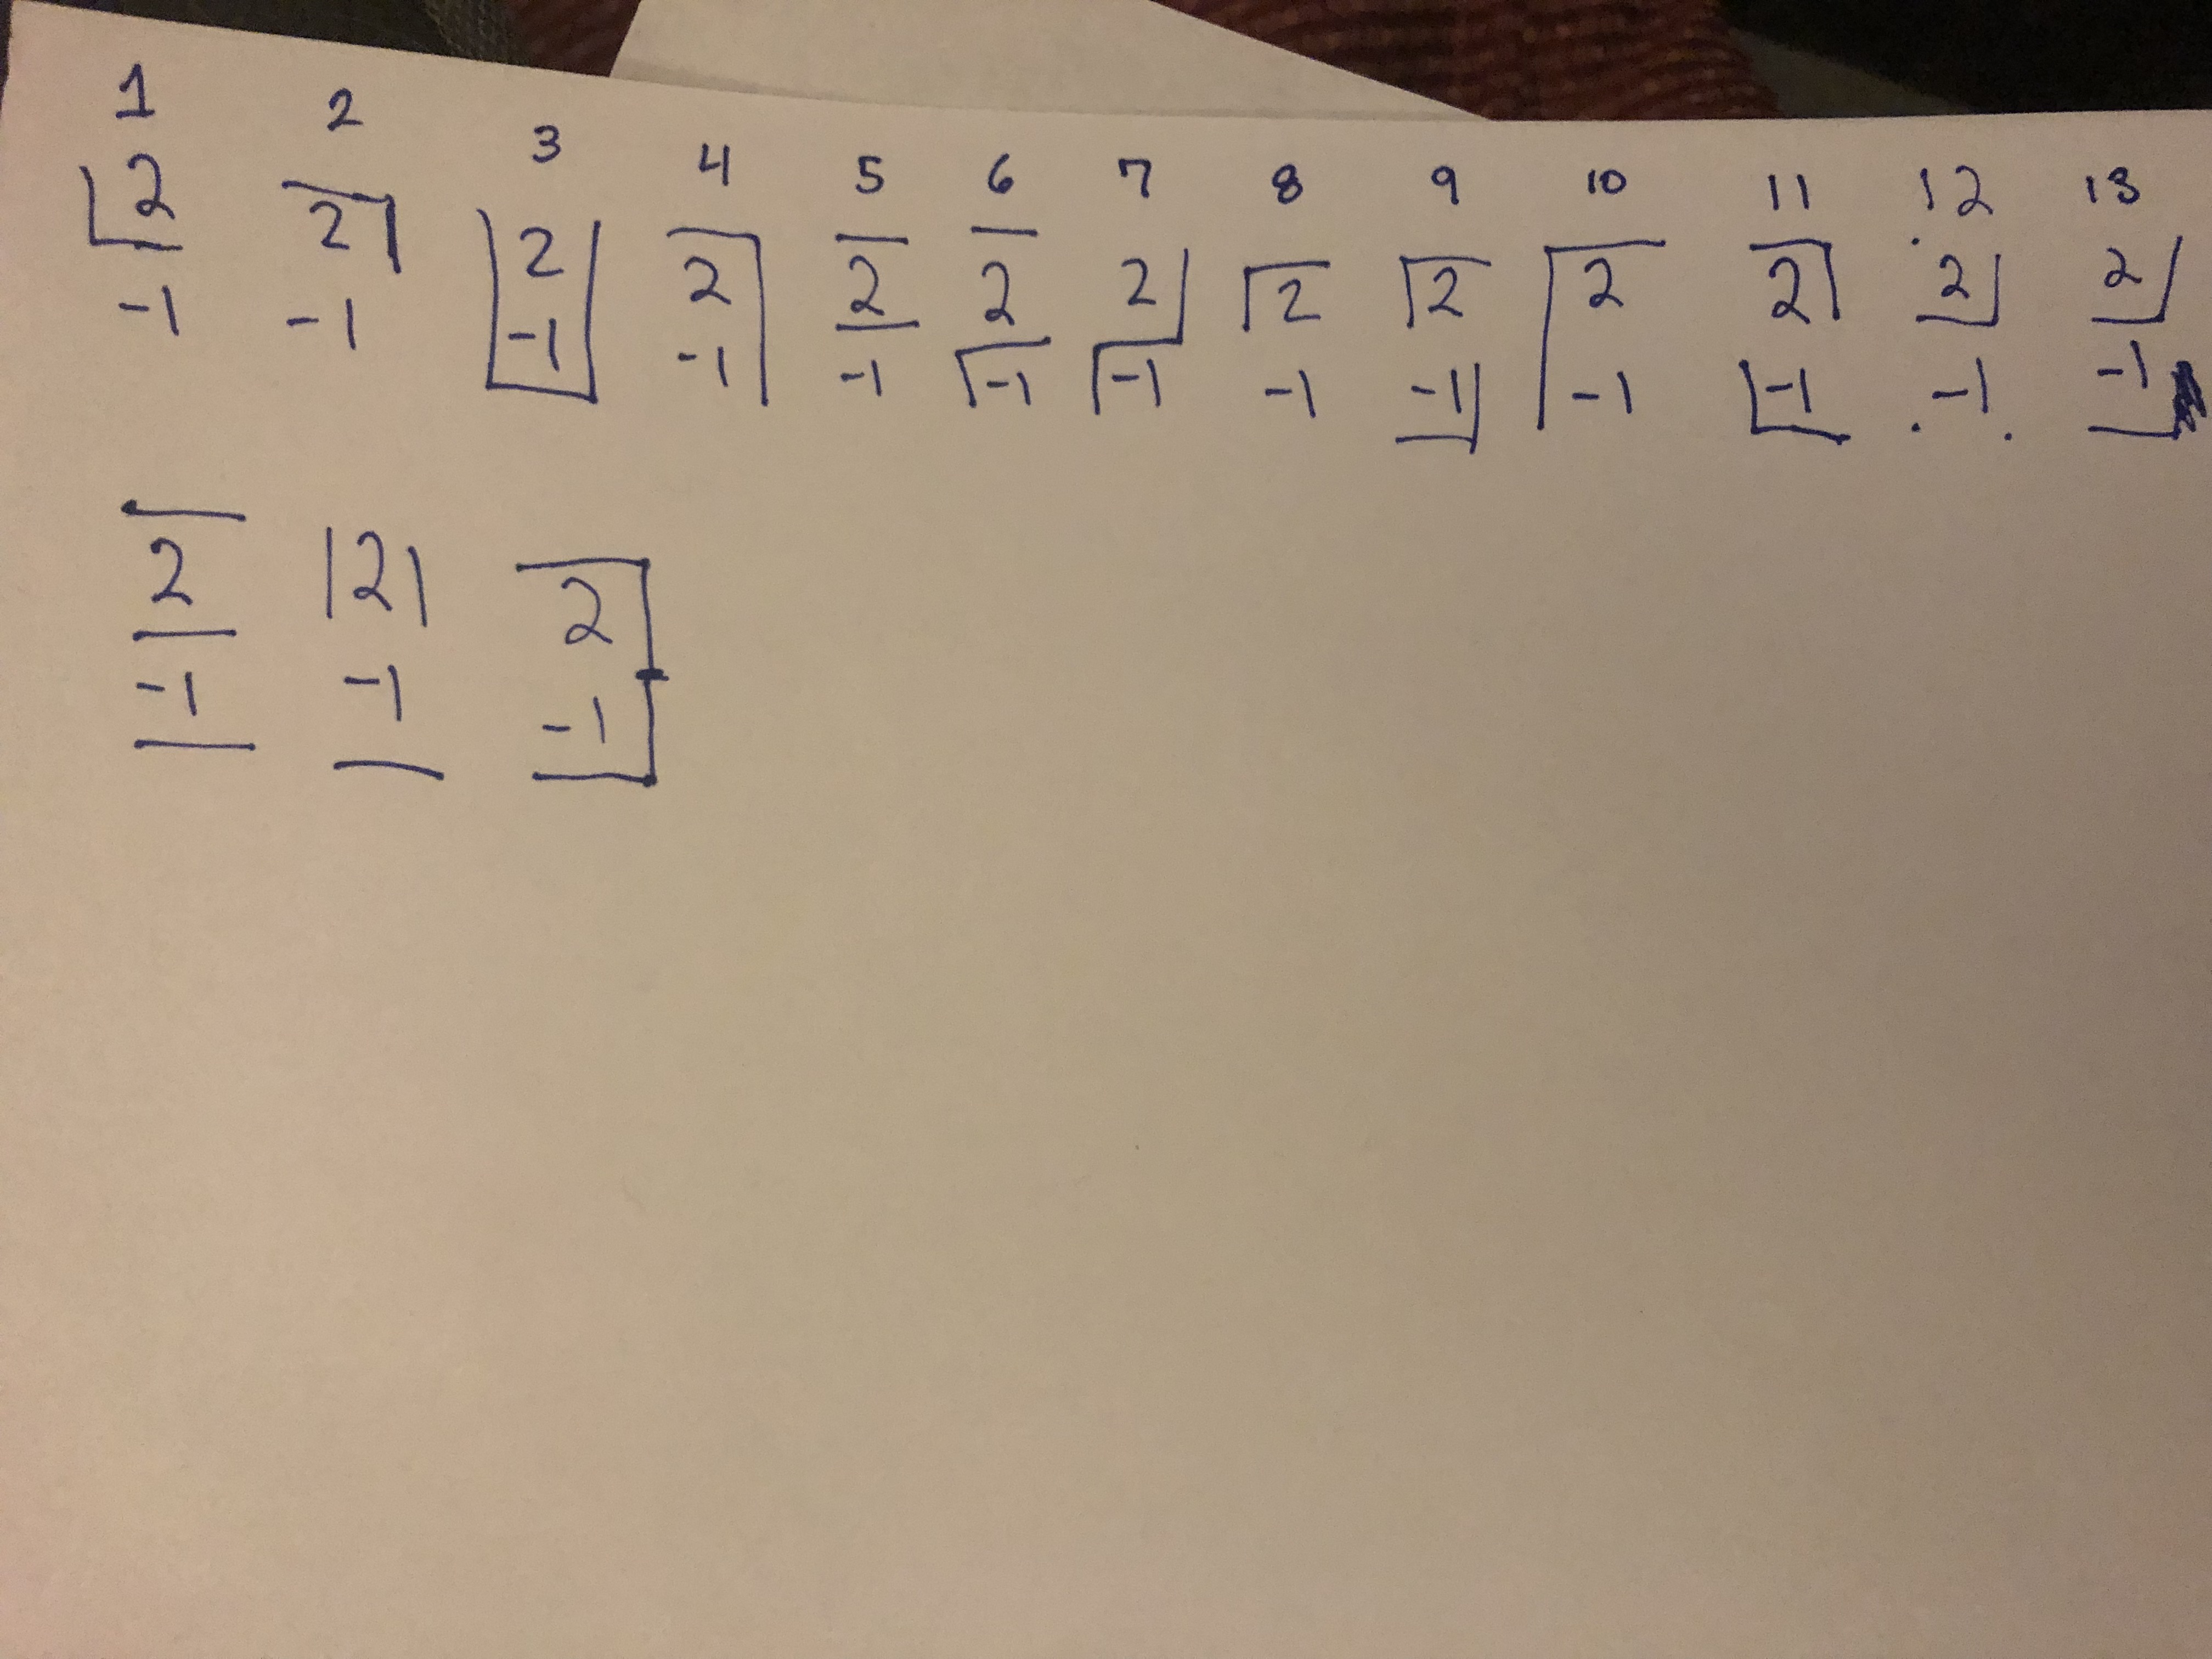 1 2 3 4 5 6 7 8 9 10 11 12 13
2 2 2 2 2 2 2 2 2 2 2 2 2
-1 -1 -1 -1 -1 -1 -1 -1 -1 -1 -1 -1 -1
2 2 2
-1 -1 -1